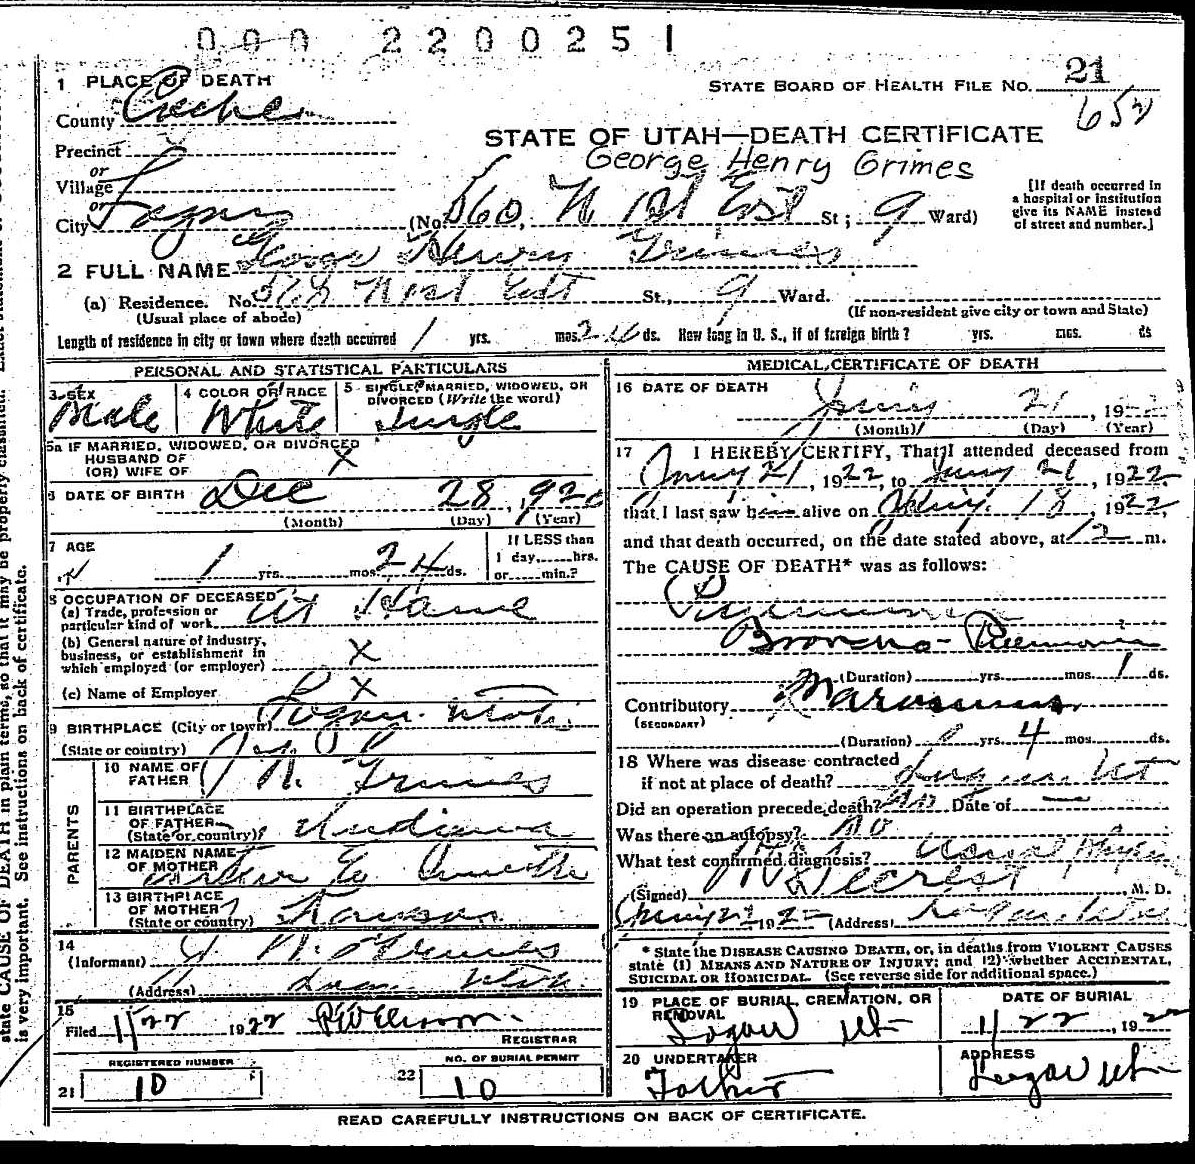 000 2200251
1 PLACE OF DEATH
STATE BOARD OF HEALTH FILE NO. 21
652
County Cache
STATE OF UTAH—DEATH CERTIFICATE
George Henry Grimes
Precinct
or
Village
or
City Logan (No. 560 N 1st East St; 9 Ward)
[If death occurred in
a hospital or institution
give its NAME instead
of street and number.]
2 FULL NAME George Henry Grimes
(a) Residence. No. 578 N 1st East St., 9 Ward.
(Usual place of abode) (If non-resident give city or town and State)
Length of residence in city or town where death occurred 1 yrs. mos. 24 ds. How long in U. S., if of foreign birth? yrs. mos. ds
PERSONAL AND STATISTICAL PARTICULARS
3 SEX
Male
4 COLOR OR RACE
White
5 SINGLE, MARRIED, WIDOWED, OR
DIVORCED (Write the word)
Single
5a IF MARRIED, WIDOWED, OR DIVORCED
HUSBAND OF
(OR) WIFE OF X
6 DATE OF BIRTH Dec 28, 1920
(Month) (Day) (Year)
7 AGE
1 yrs. mos. 24 ds.
If LESS than
1 day, hrs.
or min.?
8 OCCUPATION OF DECEASED
(a) Trade, profession or
particular kind of work At Home
(b) General nature of industry,
business, or establishment in
which employed (or employer) X
(c) Name of Employer X
9 BIRTHPLACE (City or town) Logan Utah
(State or country)
PARENTS
10 NAME OF
FATHER N. Grimes
11 BIRTHPLACE
OF FATHER
(State or country) Indiana
12 MAIDEN NAME
OF MOTHER
13 BIRTHPLACE
OF MOTHER
(State or country) Kansas
14
(Informant) N. Grimes
(Address) Logan Utah
15
Filed 1/22 1922
REGISTRAR
REGISTERED NUMBER
21 10
NO. OF BURIAL PERMIT
22 10
MEDICAL CERTIFICATE OF DEATH
16 DATE OF DEATH
21, 192
(Month) (Day) (Year)
17 I HEREBY CERTIFY, That I attended deceased from
21, 1922, to 21, 1922
that I last saw him alive on 18, 1922
and that death occurred, on the date stated above, at 12 m.
The CAUSE OF DEATH* was as follows:
Pneumonia
Broncho-Pneumonia
(Duration) yrs. mos. 1 ds.
Contributory Marasmus
(SECONDARY)
(Duration) yrs. 4 mos. ds.
18 Where was disease contracted
if not at place of death? Logan Ut
Did an operation precede death? no Date of —
Was there an autopsy? no
What test confirmed diagnosis? Usual
(Signed) M. D.
1922 (Address) Logan Utah
* State the DISEASE CAUSING DEATH, or, in deaths from VIOLENT CAUSES
state (1) MEANS AND NATURE OF INJURY; and (2) whether ACCIDENTAL,
SUICIDAL OR HOMICIDAL. (See reverse side for additional space.)
19 PLACE OF BURIAL, CREMATION, OR
REMOVAL
Logan Ut
DATE OF BURIAL
1/22, 1922
20 UNDERTAKER
Father
ADDRESS
Logan Ut
READ CAREFULLY INSTRUCTIONS ON BACK OF CERTIFICATE.
state CAUSE OF DEATH in plain terms, so that it may be properly classified.
is very important. See instructions on back of certificate.